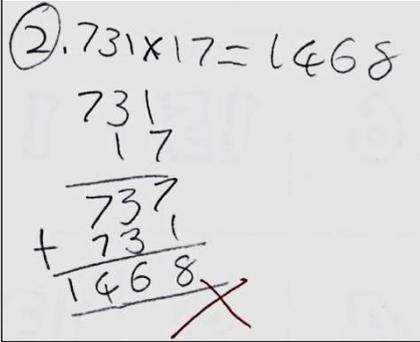 ②. 731×17=1468
731
17
737
+ 731
1468